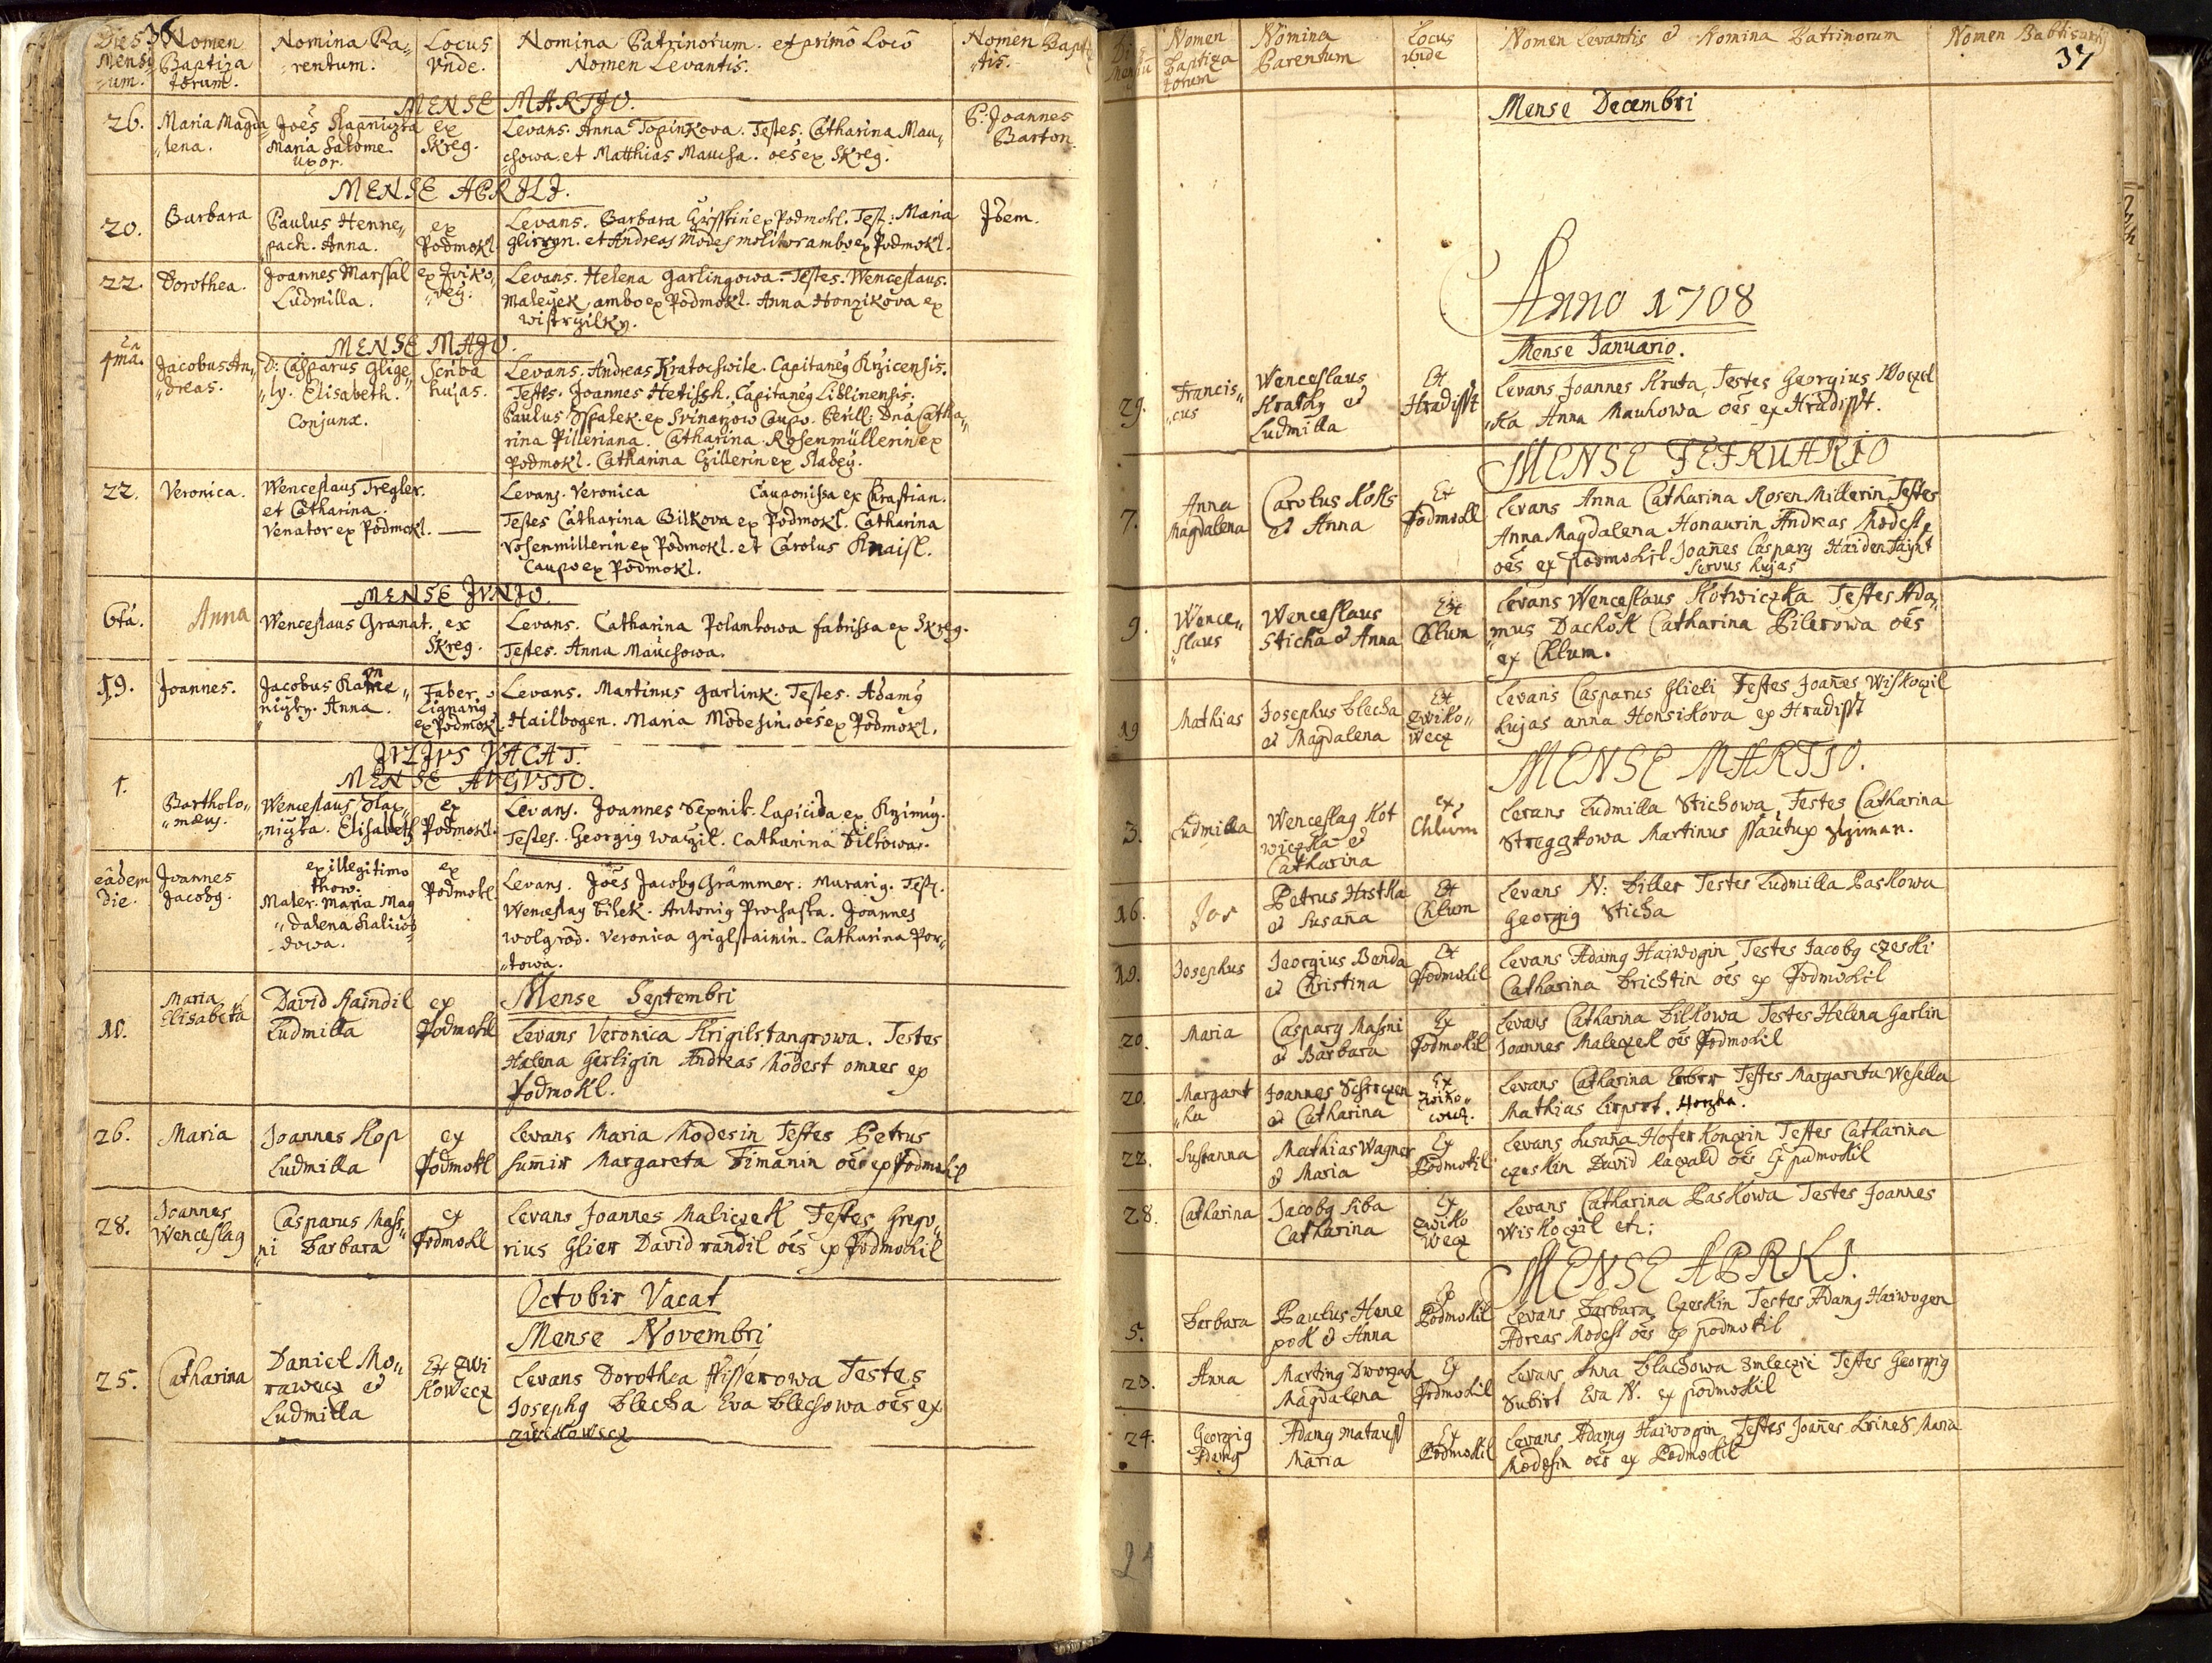 36
Dies Mensium.
Nomen Baptizatorum.
Nomina Parentum.
Locus Unde.
Nomina Patrinorum. et primo Loco
Nomen Levantis.
Nomen Baptis.
MENSE MARTJO.
26. Maria Magda„lena. Joēs Slapnizka Maria Salome uxor. ex Skreg.
Levans. Anna Topinkova. Testes. Catharina Mau„
„chowa et Matthias Maucha. oēs ex Skreg.
P. Joannes Barton
MENSE APRJLJ.
20. Barbara Paulus Henne„pach. Anna. ex Podmokl.
Levans. Barbara ex Podmokl. Test: Maria
et Andreas Modes molitor ambo ex Podmokl.
Jdem.
22. Dorothea. Joannes Marssal Ludmilla. ex Zviko„
Levans. Helena Garlingowa. Testes. Wenceslaus
Maleyek, ambo ex Podmokl. Anna Honzikova ex
wistrzilky.
MENSE MAJO.
4ma. Jacobus An„dreas. D: Casparus Glige„ly. Elisabeth. Conjunx. Scriba hujas.
Levans. Andreas Kratochwile. Capitaneg Krzicensis.
Testes. Joannes Hetissk. Capitaneg Liblinensis.
Paulus Sspalek. ex Svinarzow Caupo. Dna Catha„
rina Pilleriana. Catharina Rosenmüllerin ex
Podmokl. Catharina Czillerin ex Slabey.
22. Veronica. Wenceslaus Tregler. et Catharina. Venator ex Podmokl.
Levans. Veronica Cauponissa ex Chrastian.
Testes Catharina Bilkova ex Podmokl. Catharina
Rosenmillerin ex Podmokl. et Carolus Knaisl.
Caupo ex Podmokl.
MENSE JVNJO.
6ta. Anna Wenceslaus Granat. ex Skreg.
Levans. Catharina Polankowa fabrissa ex Skreg.
Testes. Anna Mauchowa.
19. Joannes. Jacobus Anna. Faber Lignarig ex Podmokl.
Levans. Martinus Garlink. Testes. Adamg
Hailbogen. Maria Modesin. oēs ex Podmokl.
JVLJVS VACAT.
MENSE AVGVSTO.
1. Bartholo„maeus. Wenceslaus Slap„nizka. Elisabeth ex Podmokl.
Levans. Joannes Sexnik. Lapicida ex
Testes. Georgig Catharina Bilkowa.
eâdem die. Joannes Jacobg. ex illegitimo thoro. Mater. Maria Mag„dalena ex Podmokl.
Levans. Joēs Jacobg Grammer. Murarig. Test.
Wenceslag Bilek. Antonig Prochaska. Joannes
Wolgrod. Veronica Griglstainin. Catharina Por„
„towa.
Mense Septembri
11. Maria Elisabeta David Raindil Ludmilla ex Podmokl
Levans Veronica Testes
Helena Gerligin Andreas Modest omnes ex
Podmokl.
26. Maria Joannes Kop Ludmilla ex Podmokl
Levans Maria Modesin Testes Petrus
Sumir Margareta Zimanin oēs ex Podmokl
28. Joannes Wenceslag Casparus Mass„ni Barbara ex Podmokl
Levans Joannes Maliczek Testes Grego„
rius Glier David randil oēs ex Podmokil
Octobir Vacat
Mense Novembri
25. Catharina Daniel Mo„rawecz et Ludmilla Ex Zwikowecz
Levans Dorothea Fisserowa Testes
Josephg Blecha Eva Blechowa oēs ex
Zwikowecz
37
Nomen Baptizatorum
Nomina Parentum
Locus unde
Nomen Levantis et Nomina Patrinorum
Nomen Babtisantis
Mense Decembri
Anno 1708
Mense Januario.
29. Francis„cus Wenceslaus Kratky et Ludmilla Ex Hradisst
Levans Joannes Kruta, Testes Georgius Woczel
„ka Anna Mauhowa oēs ex Hradisst.
MENSE FEFRUARIO
7. Anna Magdalena Carolus Koks et Anna Ex Podmokl
Levans Anna Catharina Rosen Millerin Testes
Anna Magdalena Honaurin Andreas Modest
oēs ex Podmokil Joañes Casparg Haidenraicht
servus hujas
9. Wence„slaus Wenceslaus Sticha et Anna Ex Chlum
Levans Wenceslaus Kotwiczka Testes Ada„
mus Dachok Catharina Pilerowa oēs
ex Chlum.
19 Mathias Josephus Blecha et Magdalena Ex Zwiko„wecz
Levans Casparus Glieli Testes Joañes Wiskoczil
hujas anna Honsikova ex Hradisst
MENSE MARTJO.
3. Ludmilla Wenceslag Kotwiczka et Catharina ex Chlum
Levans Ludmilla Stichowa, Testes Catharina
Martinus
16. Jos Petrus Hrstka et Susaña Ex Chlum
Levans N: Biller Testes Ludmilla Paskowa
Georgig Sticha
19. Josephus Jeorgius Benda et Christina Ex Podmokil
Levans Adamg Haiwogin Testes Jacobg czeski
Catharina Brichtin oēs ex Podmokil
20. Maria Casparg Massni et Barbara Ex Podmokil
Levans Catharina Bilkowa Testes Helena Garlin
Joannes Maleczek oēs Podmokil
20. Margaret„ha Joannes et Catharina Ex Zwiko„wecz.
Levans Catharina Testes Margareta Wesella
Mathias
22. Sustanna Mathias Wagner et Maria Ex Podmokil
Levans Susaña Testes Catharina
czeskin David oēs Ex podmokil
28. Catharina Jacobg Siba Catharina Ex Zwikowecz
Levans Catharina Paskowa Testes Joannes
Wiskoczil etc:
MENSE APRILI.
5. Barbara Paulus Henepok et Anna Ex Podmokil
Levans Barbara Czeskin Testes Adamg Haiwogen
Adreas Modest oēs ex podmokil
23. Anna Marting Dworzak Magdalena Ex Podmokil
Levans Anna Blachowa Testes Georgig
Subirt Eva N. ex podmokil
24. Georgig Adamg Adamg matausd Maria Ex Podmokil
Levans Adamg Haiwogin Testes Joañes Maria
Modesin oēs ex Podmokil